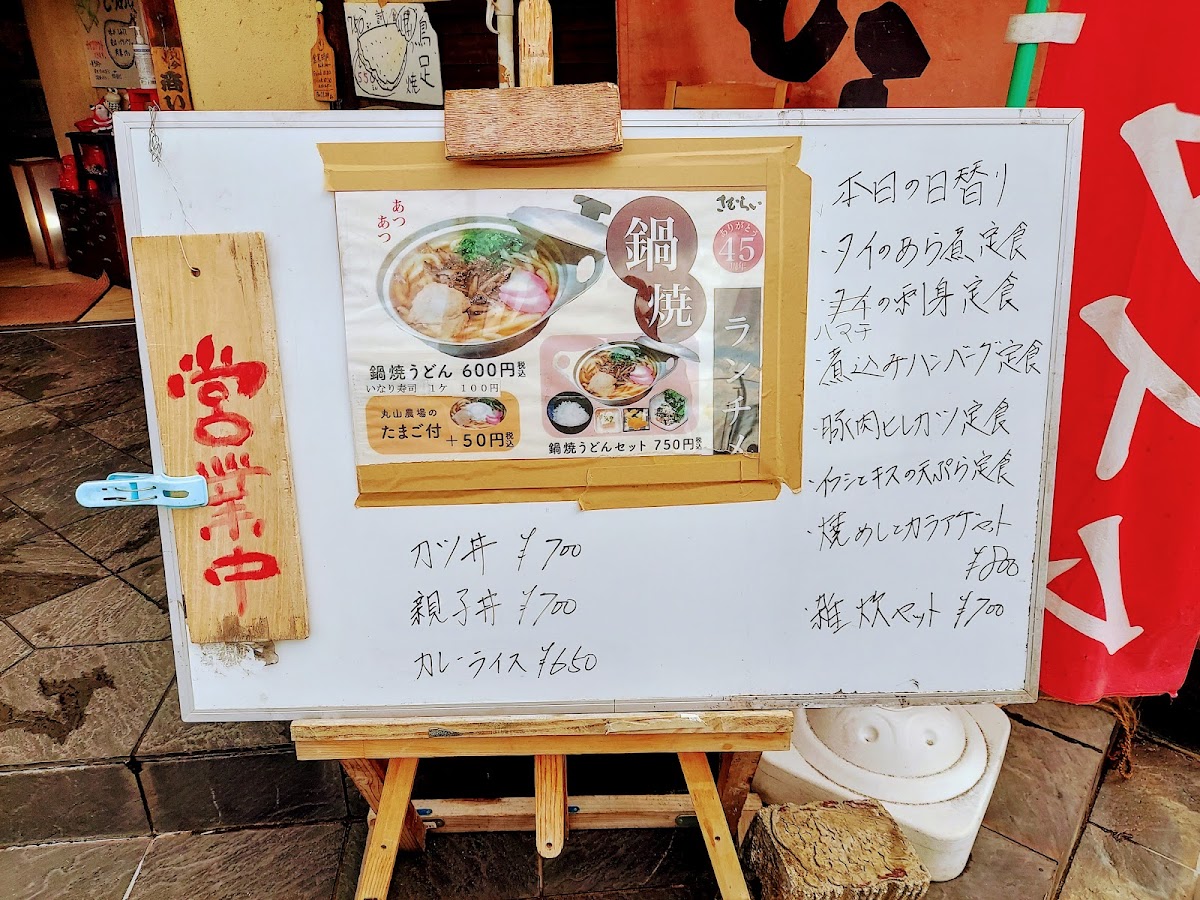 営業中
あつ
あつ
鍋焼
さむらい
ありがとう
45
ランチメ
鍋焼うどん 600円税込
いなり寿司 1ケ 100円
丸山農場の
たまご付 +50円税込
鍋焼うどんセット 750円税込
カツ丼 ¥700
親子丼 ¥700
カレーライス ¥650
本日の日替り
・タイのあら煮定食
・タイの刺身定食
ハマチ
・煮込みハンバーグ定食
・豚肉ヒレカツ定食
・イワシとキスの天ぷら定食
・焼めしとカラアゲセット
¥800
・雑炊セット ¥700